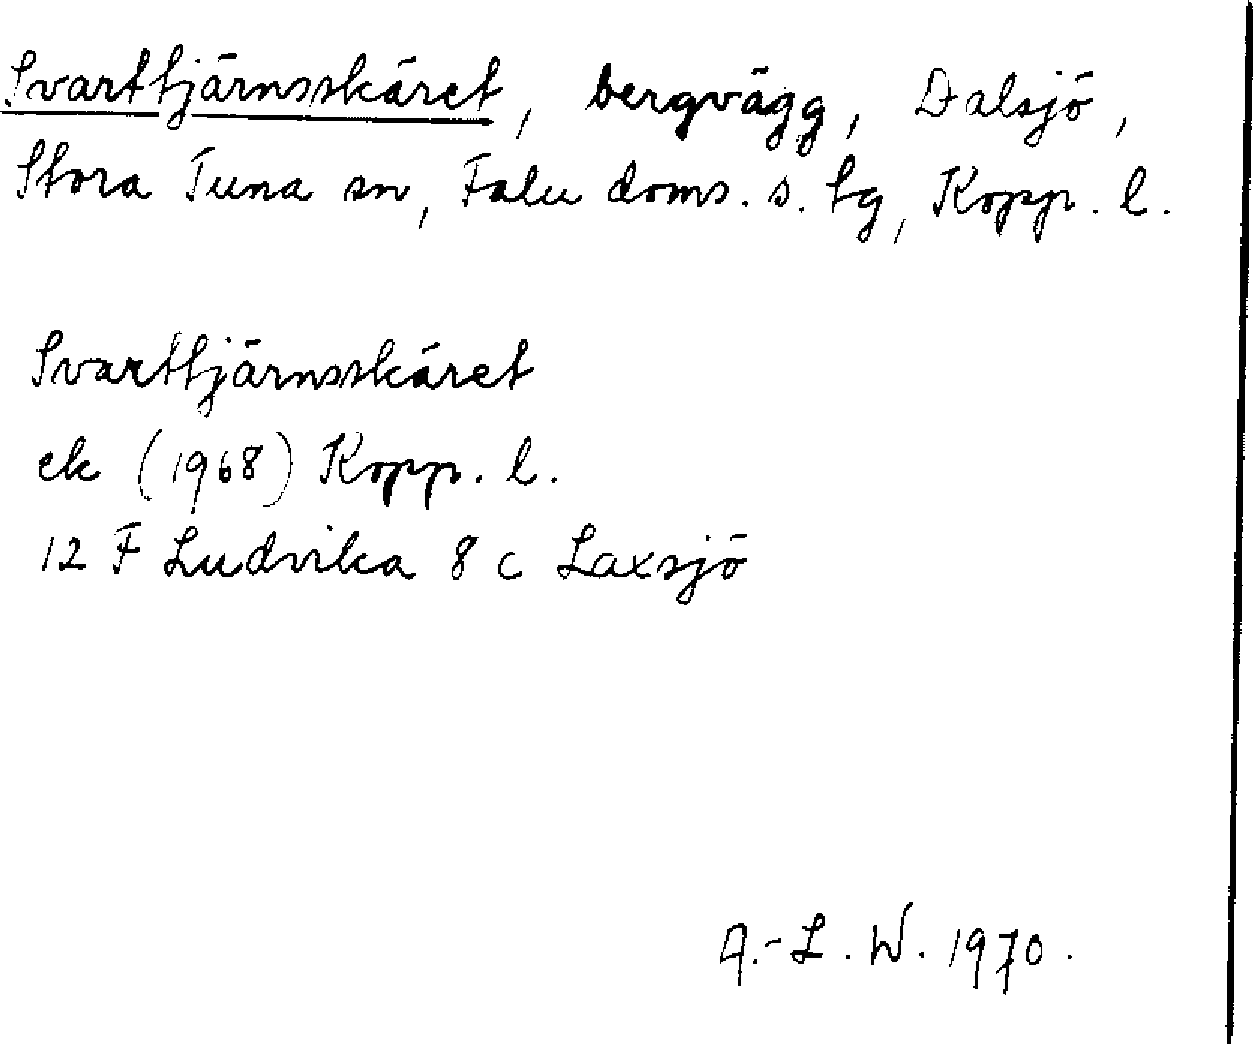 Svarttjärnsskäret, bergvägg, Dalsjö,
Stora Tuna sn, Falu doms. s. tg, Kopp. l.
Svarttjärnsskäret
ek (1968) Kopp. l.
12 F Ludvika 8 c Laxsjö
A.-L. W. 1970.